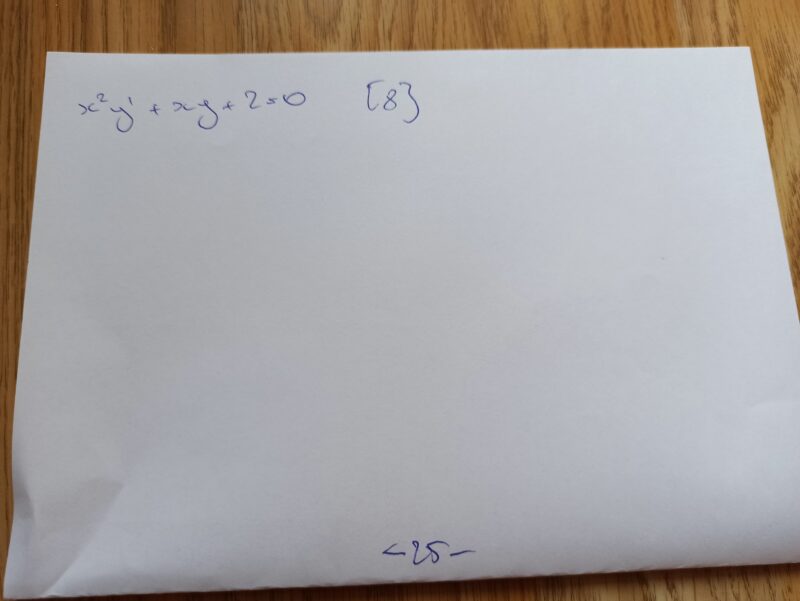 x²y' + xy + 2 = 0 [8]
-25-